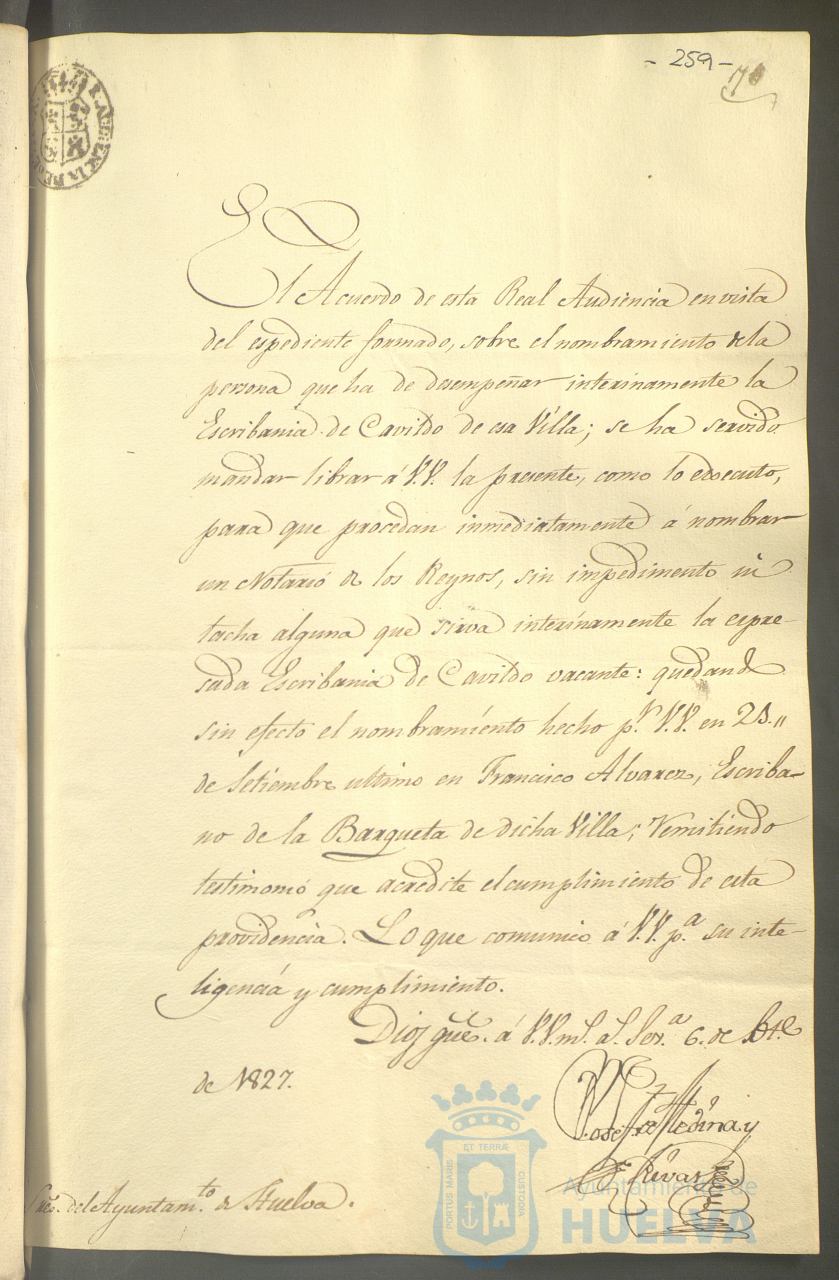 - 259 -
El Acuerdo de esta Real Audiencia en vista
del espediente formado, sobre el nombramiento de la
persona que ha de desempeñar interinamente la
Escribania de Cavildo de esa Villa; se ha servido
mandar librar á V.V. la presente, como lo executo,
para que procedan inmediatamente á nombrar
un Notario de los Reynos, sin impedimento ni
tacha alguna que sirva interinamente la espre-
sada Escribania de Cavildo vacante: quedando
sin efecto el nombramiento hecho p.r V.V. en 25.
de Setiembre ultimo en Francisco Alvarez, Escriba-
no de la Barqueta de dicha Villa; remitiendo
testimonio que acredite el cumplimiento de esta
providencia. Lo que comunico á V.V. p.a su inte-
ligencia y cumplimiento.
Dios gue. á V.V. m.s a.s Sev.a 6. de
de 1827.
José de Medina y
Rivas
Sres. del Ayuntam.to de Huelva.
PORTUS MARIS ET TERRÆ CUSTODIA
Ayuntamiento de
HUELVA